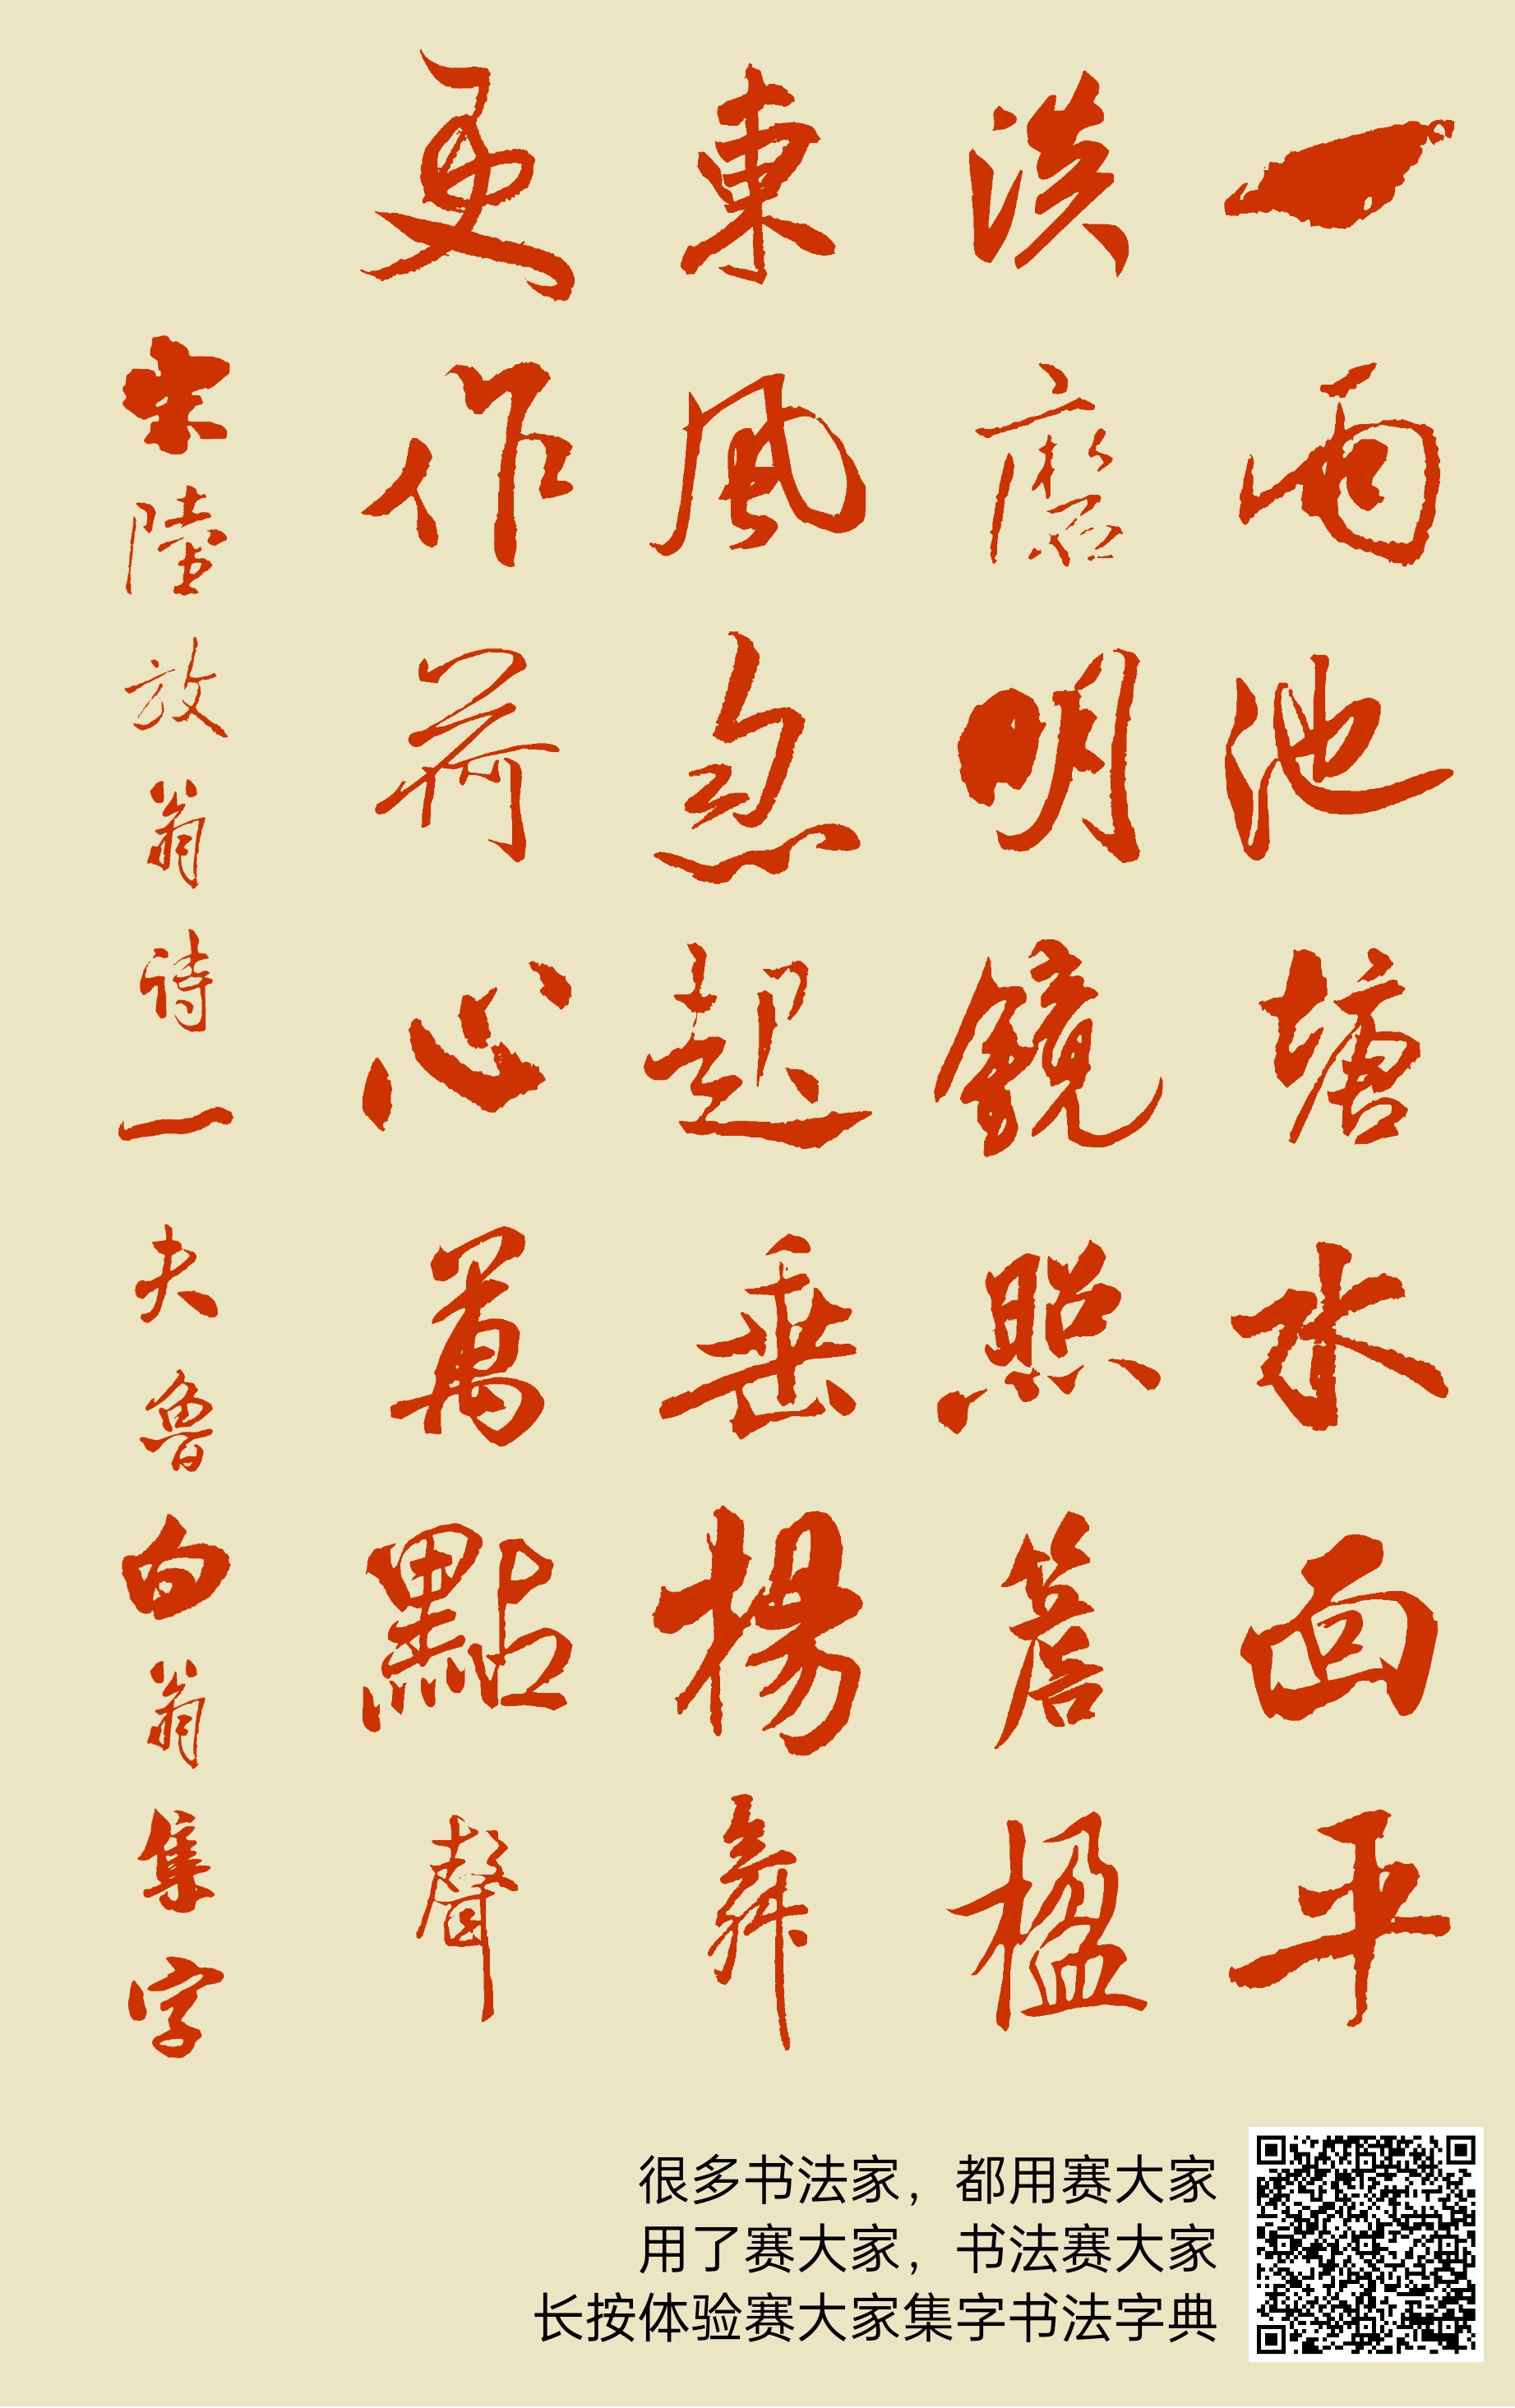 一雨池塘水面平
淡磨明鏡照簷楹
東風忽起垂楊舞
更作荷心萬點聲
宋陸放翁诗一夫魯白翁集字
很多书法家，都用赛大家
用了赛大家，书法赛大家
长按体验赛大家集字书法字典